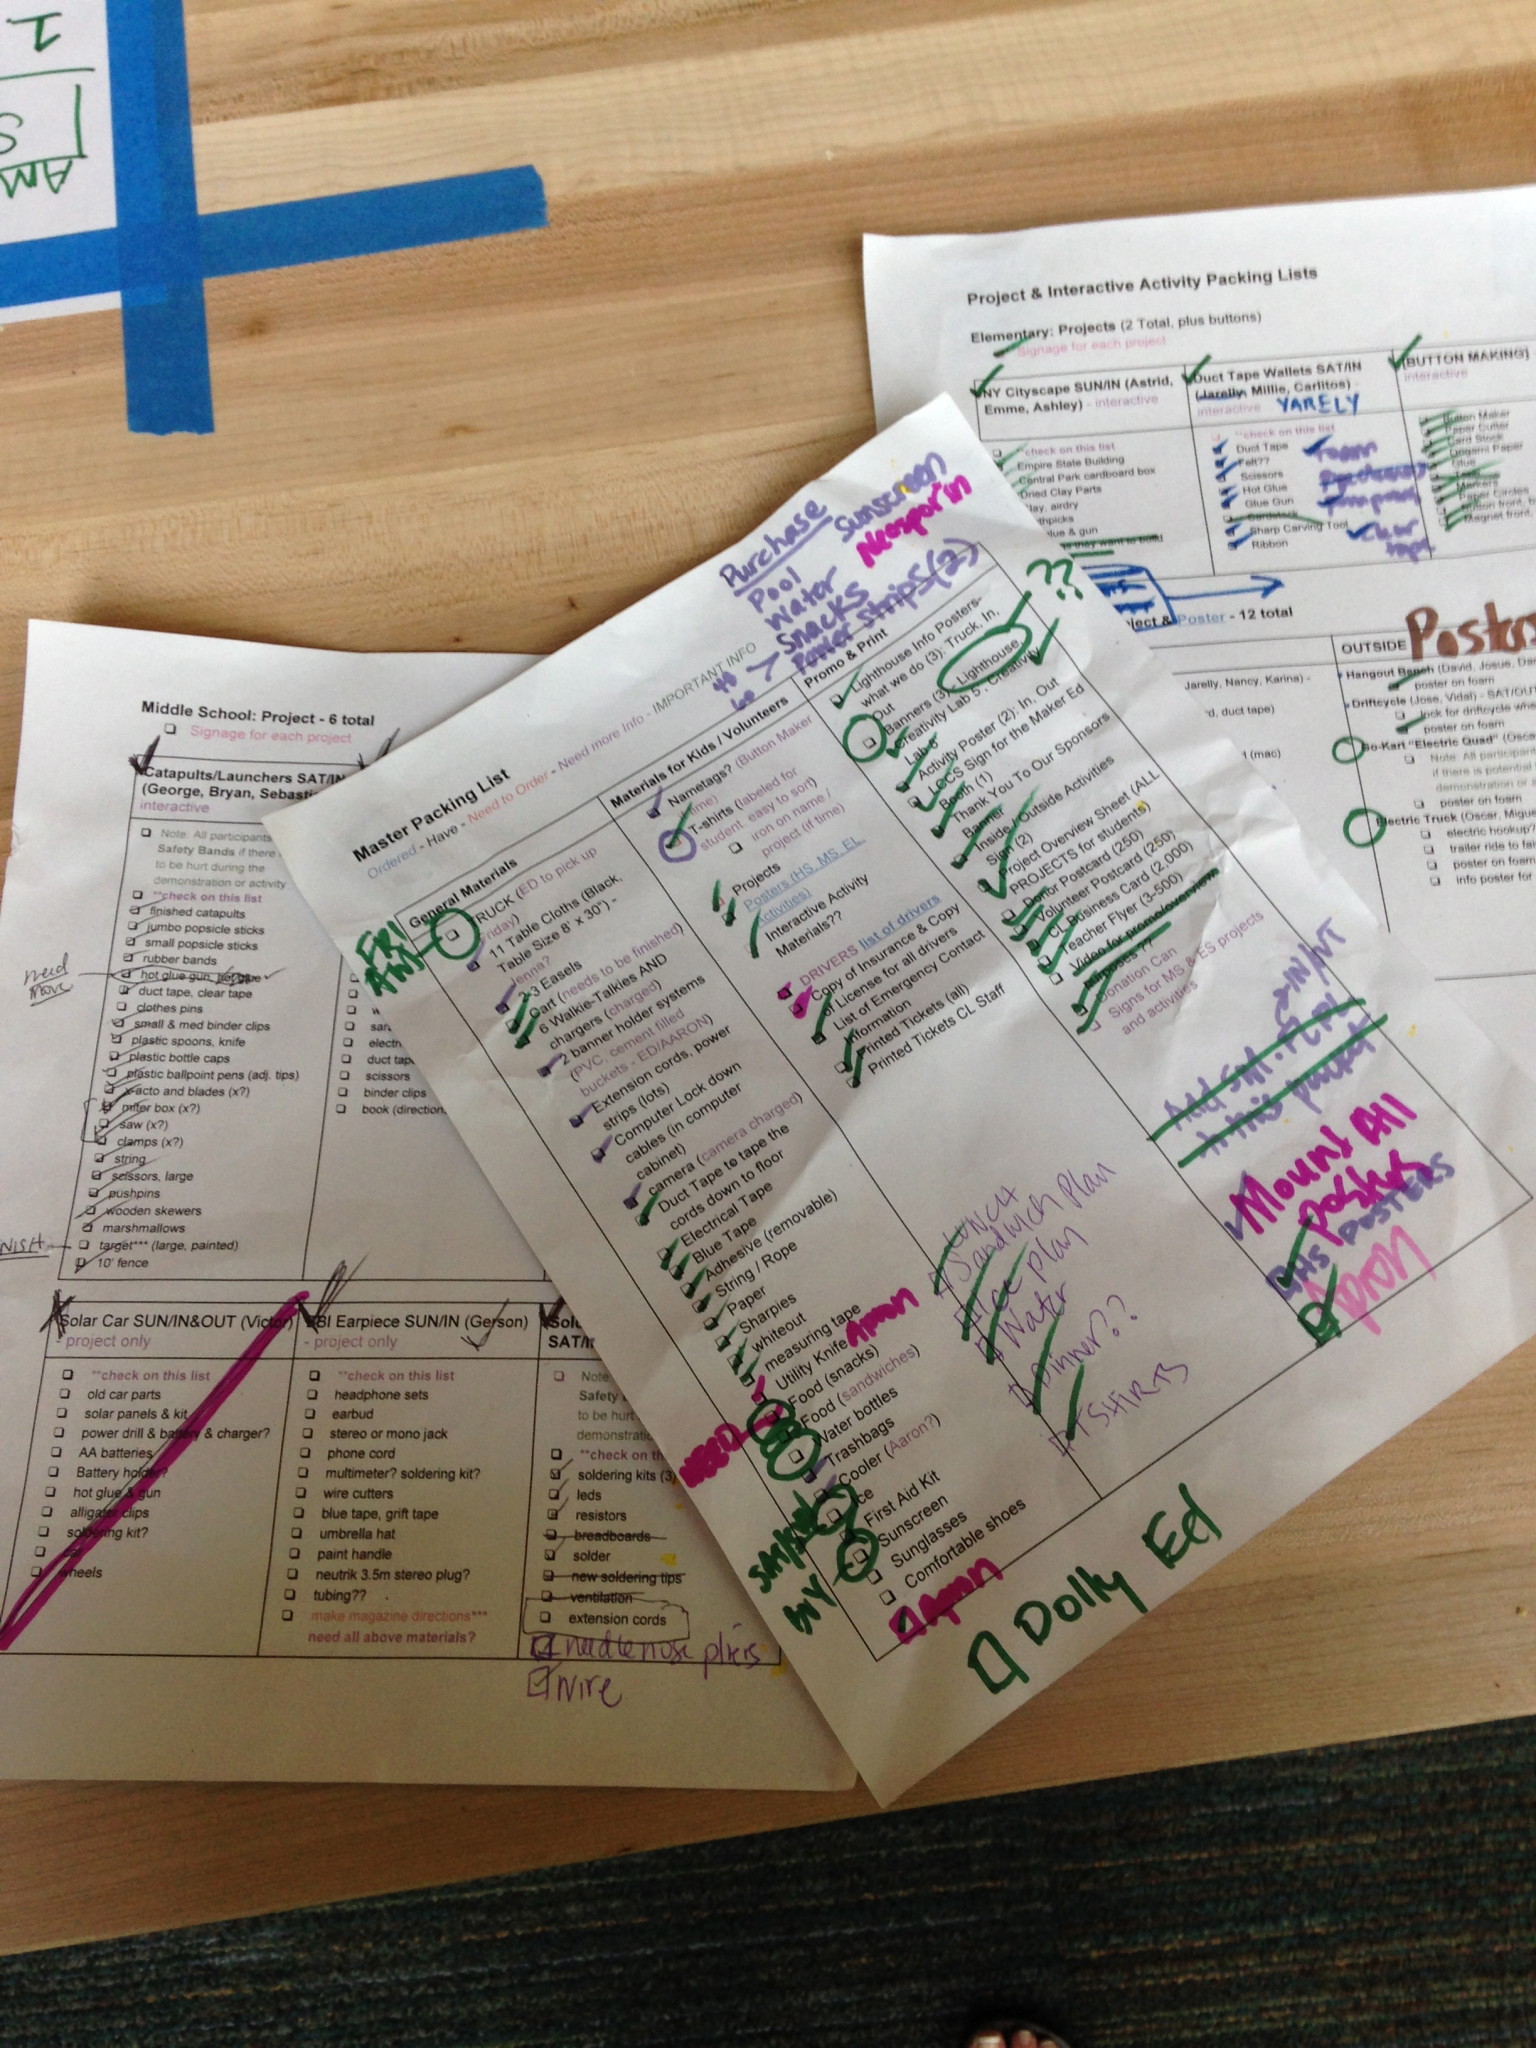 AM
S
I
Project & Interactive Activity Packing Lists
Elementary: Projects (2 Total, plus buttons)
Signage for each project
NY Cityscape SUN/IN (Astrid,
Emme, Ashley) - interactive
**check on this list
Empire State Building
Central Park cardboard box
Dried Clay Parts
airdry
& gun
they want to build
Duct Tape Wallets SAT/IN
(Jarelly, Millie, Carlitos) -
interactive YARELY
**check on this list
Duct Tape
Felt??
Scissors
Hot Glue
Glue Gun
Cardstock
Sharp Carving Tool
Ribbon
[BUTTON MAKING]
interactive
Button Maker
Paper Cutter
Card Stock
Origami Paper
Glue
Markers
Paper Circles
Button front,
Magnet front,
& Poster - 12 total
Jarelly, Nancy, Karina) -
duct tape)
(mac)
OUTSIDE Posters
Hangout Bench (David, Josue,
poster on foam
Driftcycle (Jose, Vidal) - SAT/OUT
lock for driftcycle
poster on foam
Go-Kart "Electric Quad" (Oscar
Note: All participants
if there is potential
demonstration or
poster on foam
Electric Truck (Oscar, Migue
electric hookup
trailer ride to
poster on foam
info poster for
Purchase
Pool
Water
Snacks
Power Strips (2)
Sunscreen
Neosporin
40
60
??
Master Packing List
Ordered - Have - Need to Order - Need more Info - IMPORTANT INFO
General Materials
FRI
AM
TRUCK (ED to pick up
Friday)
11 Table Cloths (Black,
Table Size 8' x 30") -
Jenna?
2-3 Easels
Cart (needs to be finished)
6 Walkie-Talkies AND
chargers (charged)
2 banner holder systems
(PVC, cement filled
buckets - ED/AARON)
Extension cords, power
strips (lots)
Computer Lock down
cables (in computer
cabinet)
camera (camera charged)
Duct Tape to tape the
cords down to floor
Electrical Tape
Blue Tape
Adhesive (removable)
String / Rope
Paper
Sharpies
whiteout
measuring tape
Utility Knife
Food (snacks)
Food (sandwiches)
Water bottles
Trashbags
Cooler (Aaron?)
Ice
First Aid Kit
Sunscreen
Sunglasses
Comfortable shoes
Apron
NEED
BUY
Materials for Kids / Volunteers
Nametags? (Button Maker
time)
T-shirts (labeled for
student, easy to sort)
iron on name /
project (if time)
Projects
Posters (HS, MS, EL,
Activities)
Interactive Activity
Materials??
DRIVERS list of drivers
Copy of Insurance & Copy
of License for all drivers
List of Emergency Contact
Information
Printed Tickets (all)
Printed Tickets CL Staff
LUNCH
Sandwich plan
Ice plan
Water
Dinner??
TSHIRTS
Promo & Print
Lighthouse Info Posters-
what we do (3): Truck, In,
Out
Banners (3) : Lighthouse,
Creativity Lab 5', Creativity
Lab 8'
Activity Poster (2): In, Out
LCCS Sign for the Maker Ed
Booth (1)
Thank You To Our Sponsors
Banner
Inside / Outside Activities
Sign (2)
Project Overview Sheet (ALL
PROJECTS for students)
Donor Postcard (250)
Volunteer Postcard (250)
CL Business Card (2,000)
Teacher Flyer (3-500)
Video for promo/everview
Donation Can
Signs for MS & ES projects
and activities
Mount All
Posters
HS POSTERS
Dolly Ed
Middle School: Project - 6 total
Signage for each project
Catapults/Launchers SAT/IN
(George, Bryan, Sebasti
interactive
Note: All participants
Safety Bands if there
to be hurt during the
demonstration or activity
**check on this list
finished catapults
jumbo popsicle sticks
small popsicle sticks
rubber bands
hot glue gun,
duct tape, clear tape
clothes pins
small & med binder clips
plastic spoons, knife
plastic bottle caps
plastic ballpoint pens (adj. tips)
x-acto and blades (x?)
miter box (x?)
saw (x?)
clamps (x?)
string
scissors, large
pushpins
wooden skewers
marshmallows
target*** (large, painted)
10' fence
need
more
electr
duct tape
scissors
binder clips
book (direction
Solar Car SUN/IN&OUT (Victor)
- project only
**check on this list
old car parts
solar panels & kit
power drill & battery & charger?
AA batteries
Battery holder?
hot glue & gun
alligator clips
soldering kit?
wheels
FBI Earpiece SUN/IN (Gerson)
- project only
**check on this list
headphone sets
earbud
stereo or mono jack
phone cord
multimeter? soldering kit?
wire cutters
blue tape, grift tape
umbrella hat
paint handle
neutrik 3.5m stereo plug?
tubing??
make magazine directions***
need all above materials?
SAT/IN
Note
Safety
to be hurt
demonstrati
**check on th
soldering kits (3)
leds
resistors
breadboards
solder
new soldering tips
ventilation
extension cords
needlenose pliers
wire